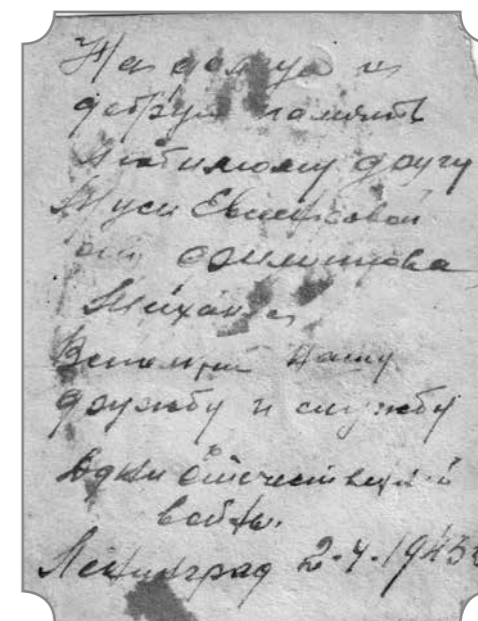 На долгую и
добрую память
любимому другу
Муси
от
Михаила
Вспомни нашу
дружбу и службу
в дни Отечественной
войны.
Ленинград 2.4.1943г